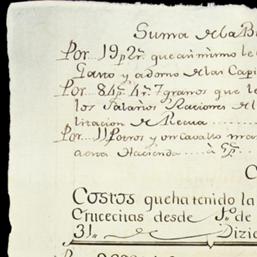 Suma de la B
Por... 19 p. 2 r. que asimismo le
Gasto y adorno de las Capi
Por... 84 p. 4 r. 7 granos que le
los Salarios Raciones de l
lizacion de Recua
Por... 11 Potros y un cavallo man
a ema Hacienda ... à 5 p.
C
Costos que ha tenido la
Crucecitas desde 1.º de
31 de Dizie